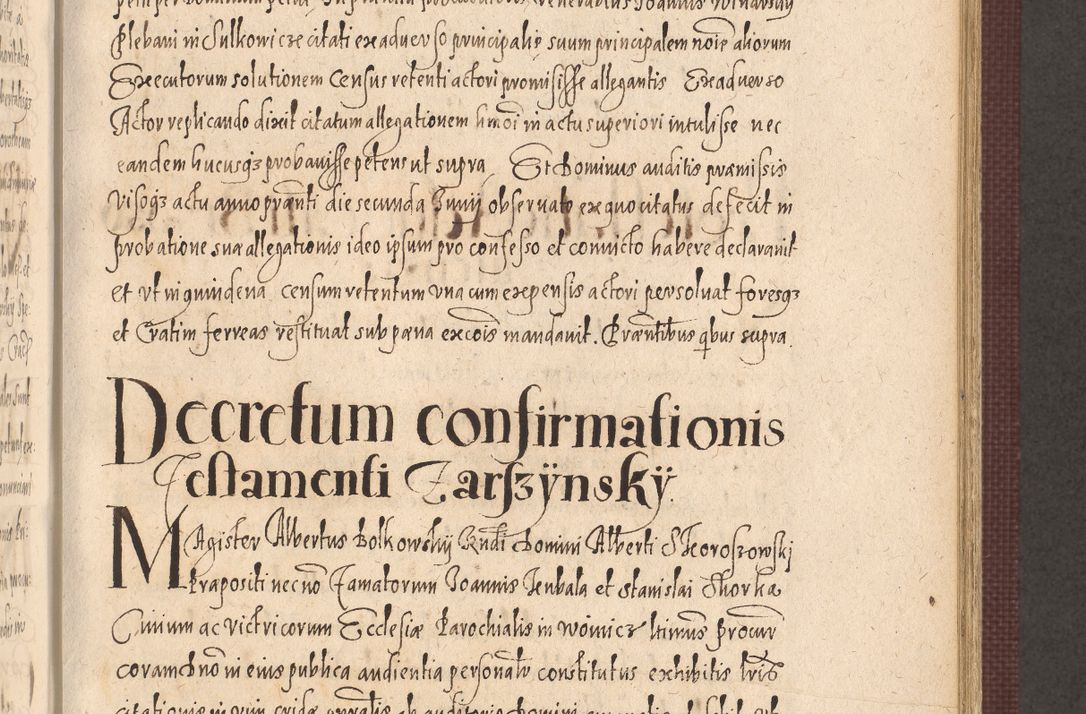 Plebani in Sulkowicze citati exaduerso principalis suum principalem noie aliorum
Executorum solutionem Census retenti actori promisisse allegantis Exaduerso
Actor replicando dixit citatum allegationem hmoi in actu superiori intulisse nec
eandem hucusqz probauisse petens ut supra Et Dominus auditis præmissis
visoqz actu anno prænti die secunda Junij obseruato ex quo citatus defecit in
probatione sua allegationis ideo ipsum pro confesso et conuicto habere declarauit
et vt in quindena censum retentum una cum expensis actori persoluat foresqz
et Cratim ferreas restituat sub pæna excois mandauit. Præntibus qbus supra.
Decretum confirmationis
Testamenti Zarszÿnskÿ.
MAgister Albertus Bolkowskij Rndi Domini Alberti
Præpositi necno Joannis et Stanislai
Ciuium ac victricorum Ecclesiæ Parochialis in Woinicz ltimus Procur
coram dno in eius publica audientia personalr constitutus exhibitis lris